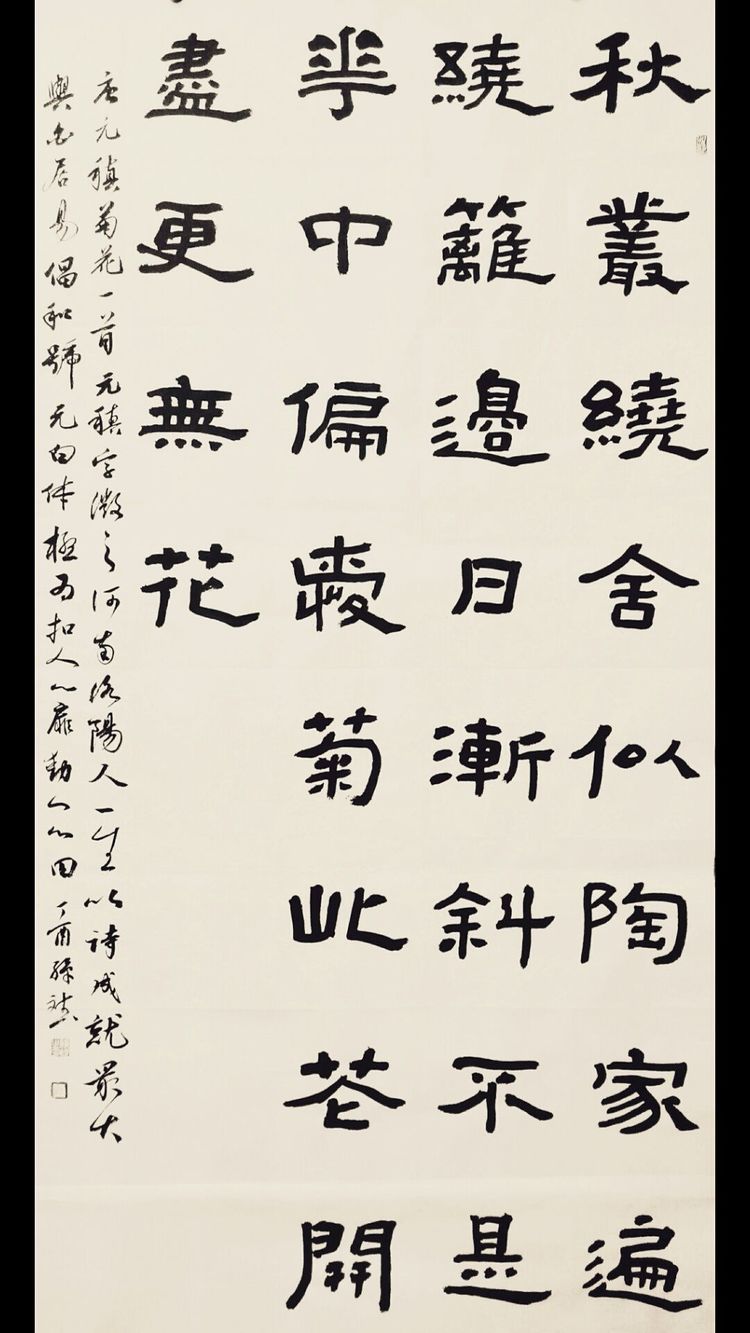 秋叢繞舍似陶家遍
繞籬邊日漸斜不是
華中偏愛菊此花開
盡更無花
唐元稹菊花一首元稹字微之河南洛陽人一生以詩成就最大
與白居易倡和號元白体極為扣人心扉動人心田丁酉